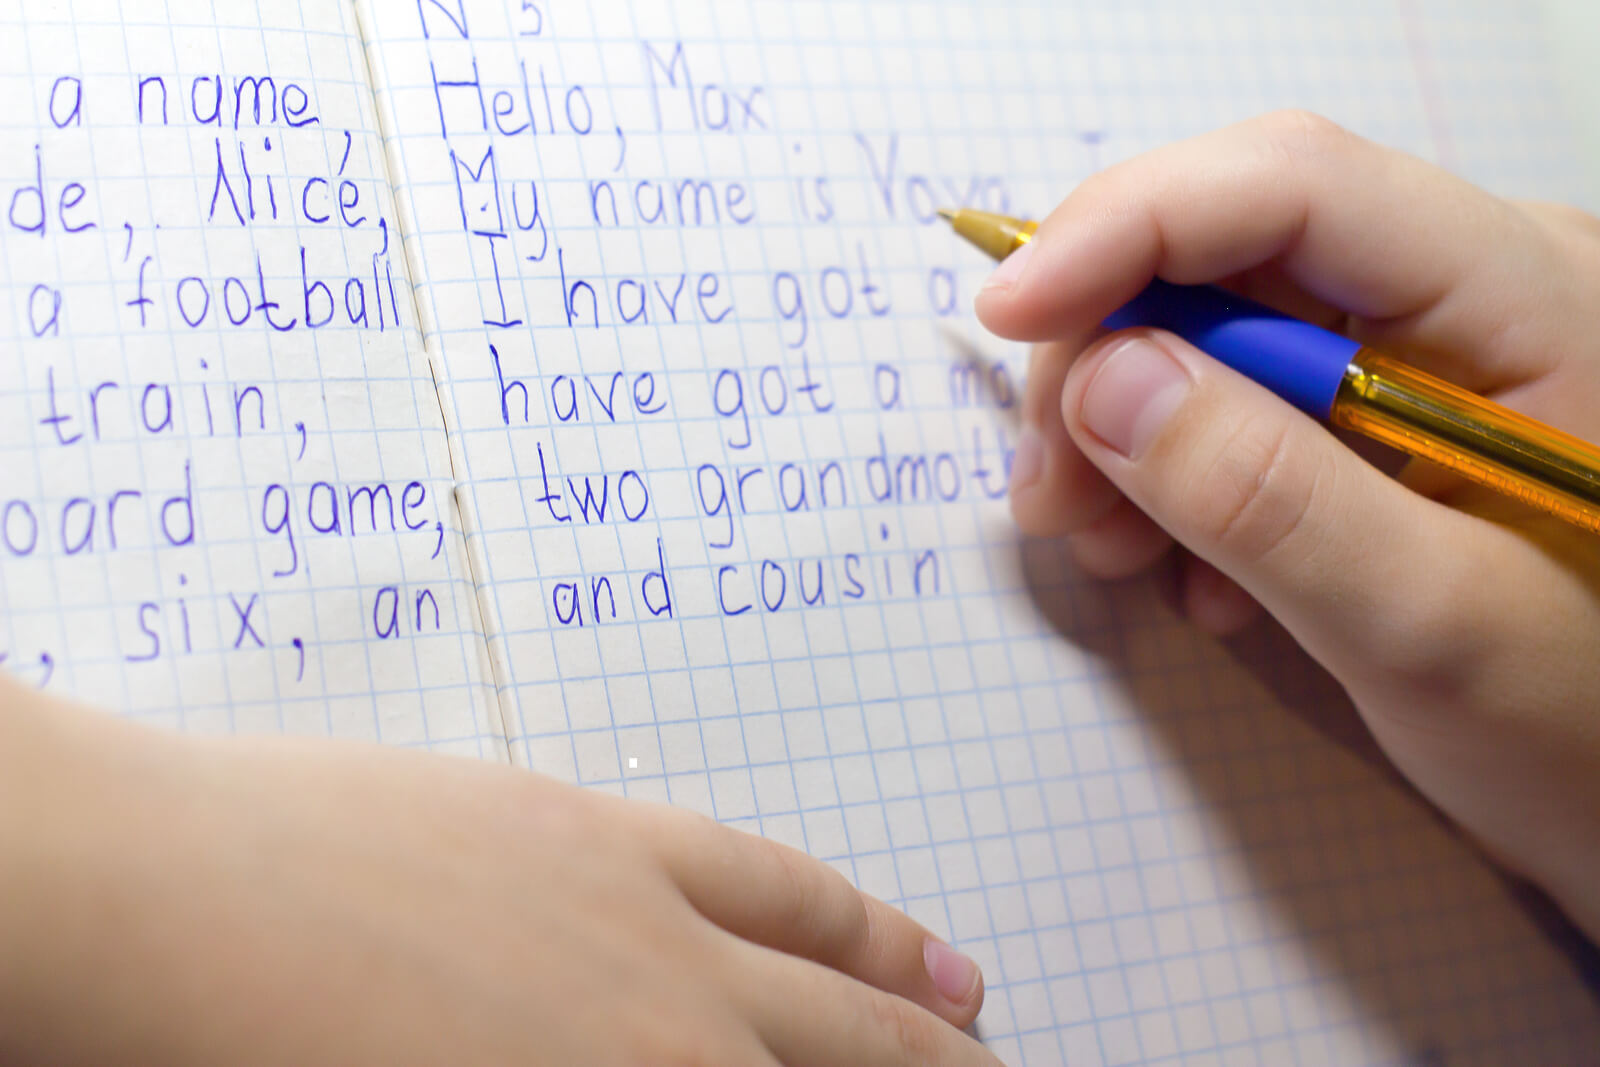 a name,
de, Alice,
a football
train,
oard game,
, six, an
N 5
Hello, Max
My name is Vova I
I have got a
have got a mo
two grandmoth
and cousin